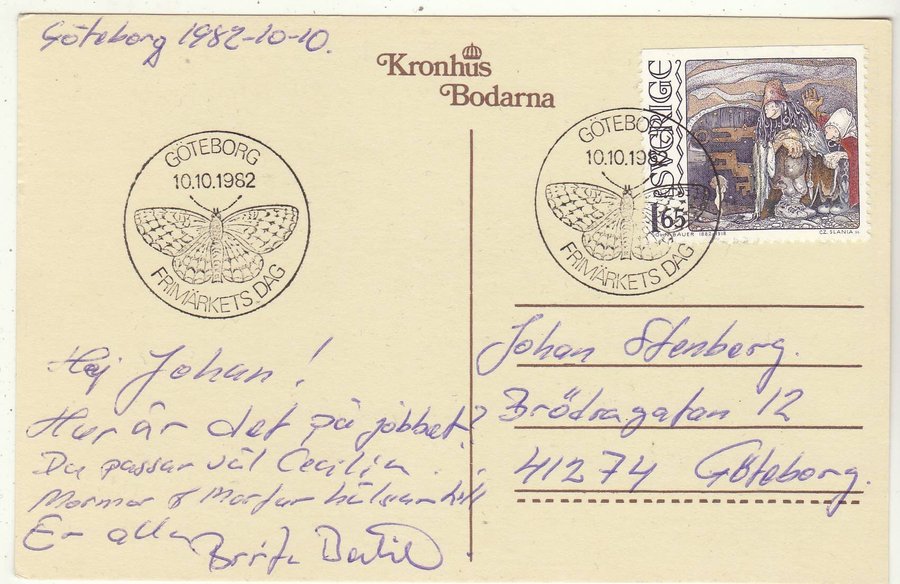 Göteborg 1982-10-10.
Kronhus
Bodarna
SVERIGE
165
JOHN BAUER 1882-1918
CZ. SLANIA
GÖTEBORG
10.10.1982
FRIMÄRKETS DAG
GÖTEBORG
10.10.1982
FRIMÄRKETS DAG
Hej Johan!
Hur är det på jobbet?
Du passar väl Cecilia.
Mormor & Morfar hälsar till
Er alla
Brita Bertil
Johan Stenberg.
Brödragatan 12
41274 Göteborg.